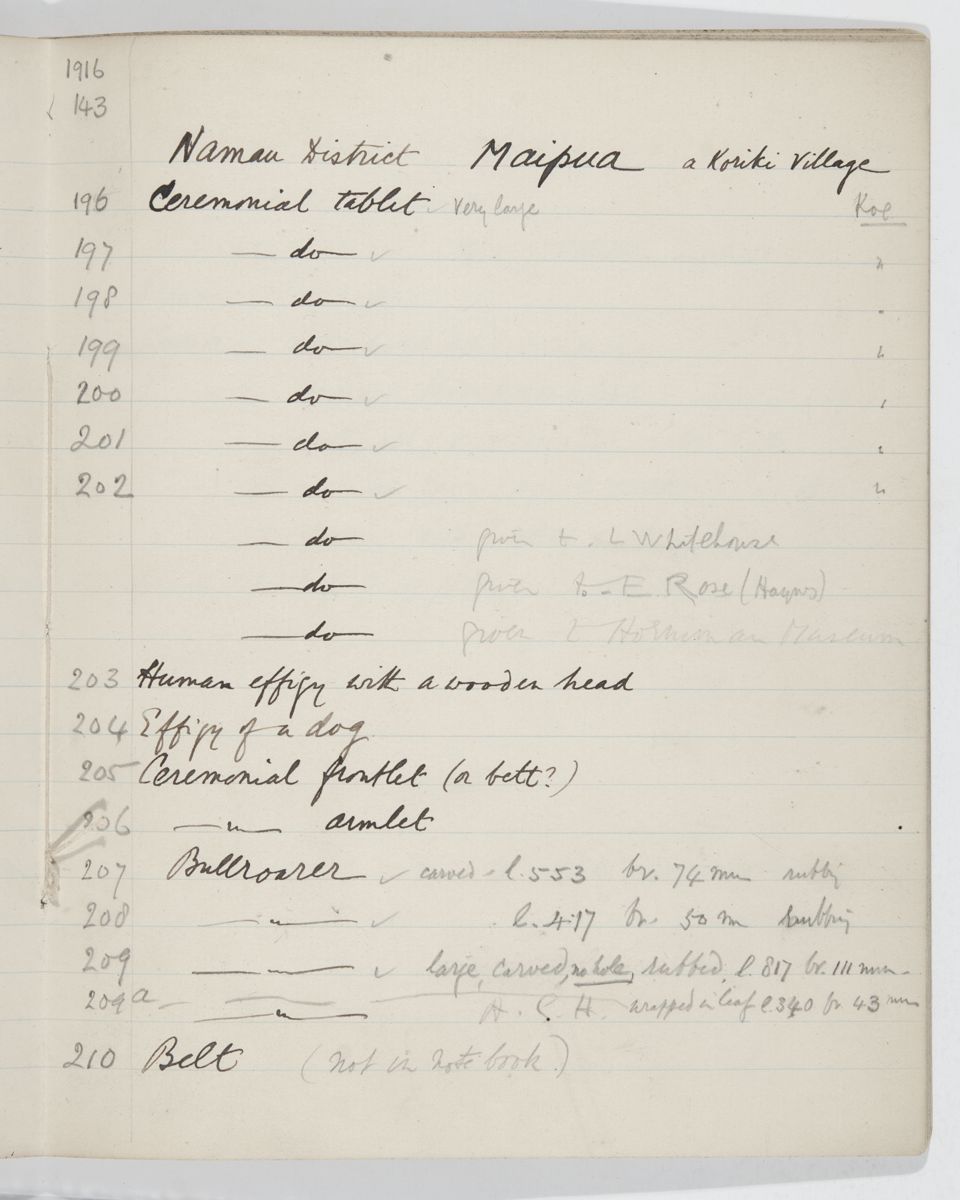 1916
143
Namau District Maipua a Koriki Village
196 Ceremonial tablet very large Koe
197 — do — ✓ "
198 — do — ✓ "
199 — do — ✓ "
200 — do — ✓ "
201 — do — ✓ "
202 — do — ✓ "
— do — given to L Whitehouse
— do — given to E. Rose (Haynes)
— do — given to Horniman Museum
203 Human effigy with a wooden head
204 Effigy of a dog
205 Ceremonial frontlet (or belt?)
206 — " — armlet
207 Bullroarer ✓ carved - l. 553 br. 74 mm rubbing
208 — " — ✓ l. 417 br. 50 m rubbing
209 — " — ✓ large, carved, no hole, rubbed, l. 817 br. 111 mm.
209a — " — wrapped in leaf l. 340 br 43 mm
210 Belt (not in note book.)